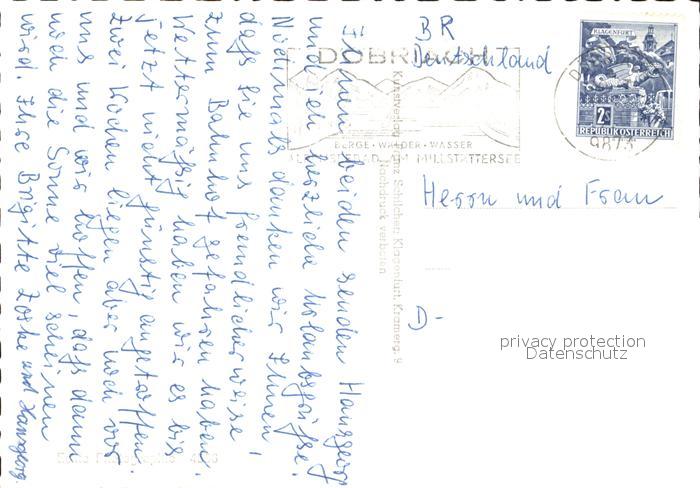 Ihnen beiden senden Hansgeorg
und ich herzliche Urlaubsgrüße.
Nochmals danken wir Ihnen,
daß Sie uns freundlicherweise
zum Bahnhof gefahren haben.
Wettermäßig haben wir es bis
jetzt nicht günstig angetroffen.
Zwei Wochen liegen aber noch vor
uns und wir hoffen, daß dann
noch die Sonne viel scheinen
wird. Ihre Brigitte und Hansgeorg.
BR
Deutschland
DÖBRIACH
BERGE · WÄLDER · WASSER
AM MILLSTÄTTERSEE
9873
KLAGENFURT
2s
REPUBLIK ÖSTERREICH
Herrn und Frau
D-
Kunstverlag Franz Schilcher, Klagenfurt, Kramerg. 9
Nachdruck verboten
privacy protection
Datenschutz